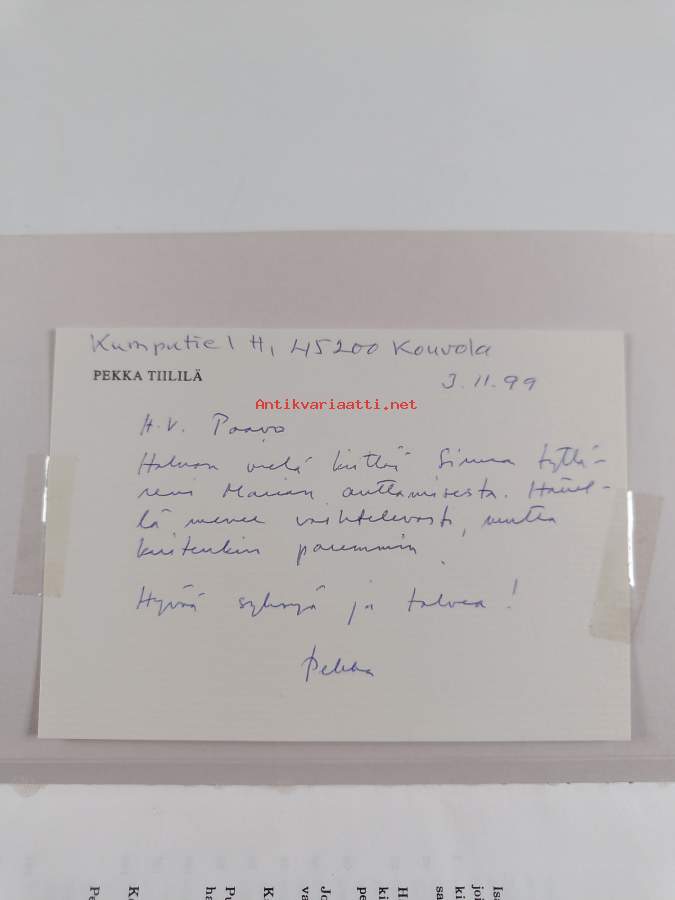 Kumputie 1 H, 45200 Kouvola
PEKKA TIILILÄ
3.11.99
Antikvariaatti.net
H.V. Paavo
Haluan vielä kiittää Sinua tyttä-
reni Marian auttamisesta. Hänel-
lä menee vaihtelevasti, mutta
kuitenkin paremmin.
Hyvää syksyä ja talvea!
Pekka